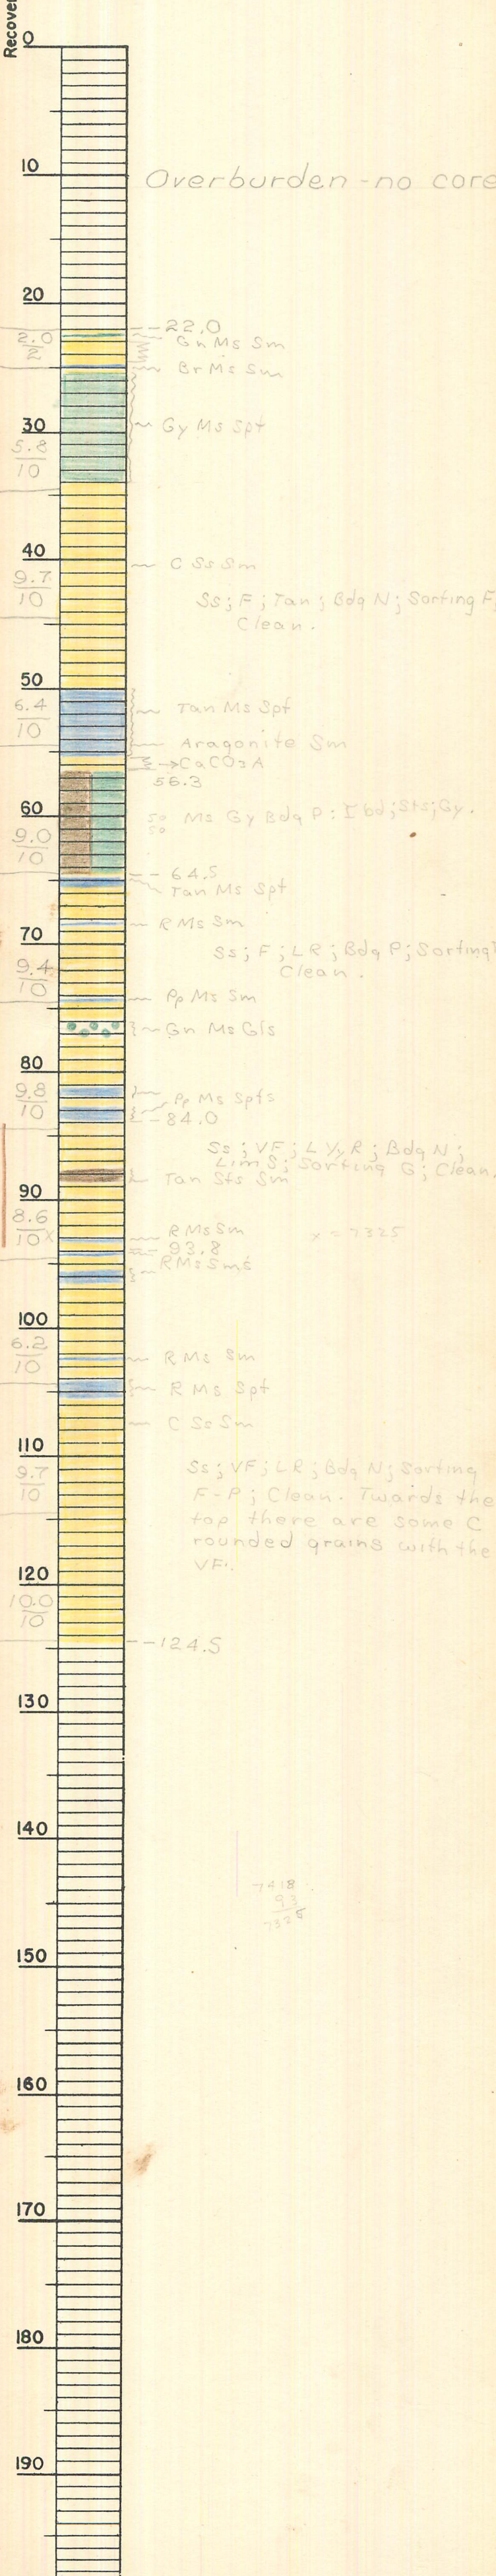 0
10
Overburden - no core
20
--22.0
2.0
2
Gn Ms Sm
Br Ms Sm
30
Gy Ms Spt
5.8
10
40
C Ss Sm
9.7
10
Ss; F; Tan; Bdg N; Sorting F;
Clean.
50
6.4
10
Tan Ms Spt
Aragonite Sm
→CaCO3 A
56.3
60
50
50
Ms Gy Bdg P: Ibd; Sts; Gy.
9.0
10
--64.5
Tan Ms Spt
R Ms Sm
70
Ss; F; LR; Bdg P; Sorting
Clean.
9.4
10
Pp Ms Sm
Gn Ms Gls
80
9.8
10
Pp Ms Spts
-84.0
Ss; VF; L Y, R; Bdg N;
Lim S; Sorting G; Clean.
Tan Sts Sm
90
8.6
10x
R Ms Sm
x = 7325
--93.8
R Ms Sms
100
6.2
10
R Ms Sm
R Ms Spt
C Ss Sm
110
9.7
10
Ss; VF; LR; Bdg N; Sorting
F-P; Clean. Twards the
top there are some C
rounded grains with the
VF.
120
10.0
10
--124.5
130
140
7418
93
7325
150
160
170
180
190